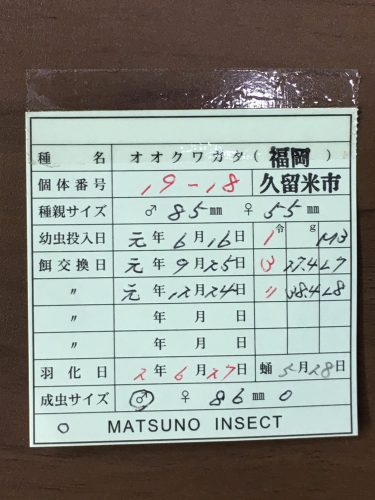 種 名 オオクワガタ(福岡)
個体番号 19-18 久留米市
種親サイズ ♂ 85㎜ ♀ 55㎜
幼虫投入日 元年6月16日 1令 g M3
餌交換日 元年9月25日 3 27.4 L7
〃 元年12月24日 〃 28.4 L8
〃 年 月 日
〃 年 月 日
羽化日 2年6月27日 蛹 5月28日
成虫サイズ ♂ ♀ 86㎜ 0
0 MATSUNO INSECT